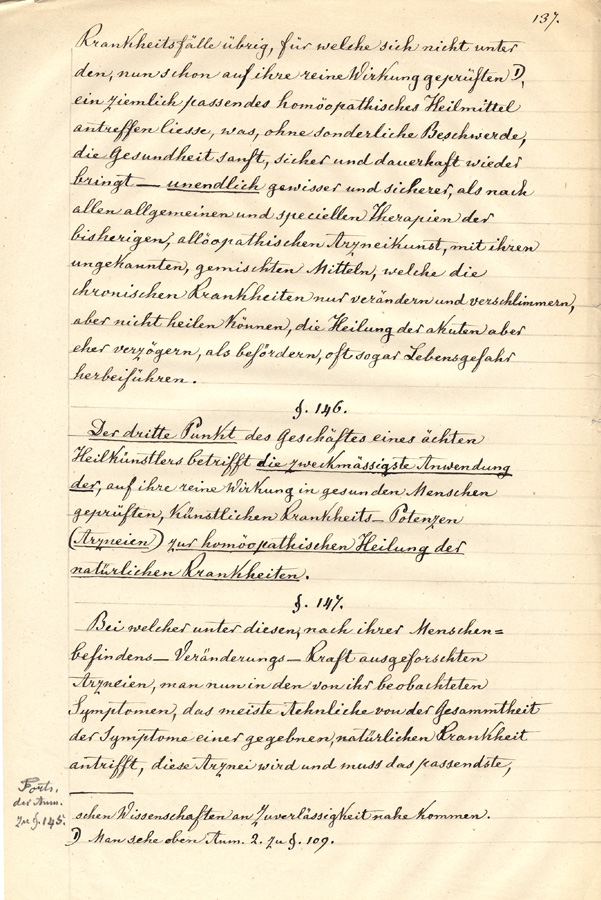 137.
Krankheitsfälle übrig, für welche sich nicht unter
den, nun schon auf ihre reine Wirkung geprüften 1),
ein ziemlich passendes homöopathisches Heilmittel
antreffen liesse, was, ohne sonderliche Beschwerde,
die Gesundheit sanft, sicher und dauerhaft wieder
bringt — unendlich gewisser und sicherer, als nach
allen allgemeinen und speciellen Therapien der
bisherigen, allöopathischen Arzneikunst, mit ihren
ungekannten, gemischten Mitteln, welche die
chronischen Krankheiten nur verändern und verschlimmern,
aber nicht heilen können, die Heilung der akuten aber
eher verzögern, als befördern, oft sogar Lebensgefahr
herbeiführen.
§. 146.
Der dritte Punkt des Geschäftes eines ächten
Heilkünstlers betrifft die zweckmässigste Anwendung
der, auf ihre reine Wirkung in gesunden Menschen
geprüften, künstlichen Krankheits-Potenzen
(Arzneien) zur homöopathischen Heilung der
natürlichen Krankheiten.
§. 147.
Bei welcher unter diesen, nach ihrer Menschen=
befindens-Veränderungs-Kraft ausgeforschten
Arzneien, man nun in den von ihr beobachteten
Symptomen, das meiste Aehnliche von der Gesammtheit
der Symptome einer gegebnen, natürlichen Krankheit
antrifft, diese Arznei wird und muss das passendste,
Forts.
der Anm.
zu §. 145.
schen Wissenschaften an Zuverlässigkeit nahe kommen.
1) Man sehe oben Anm. 2. zu §. 109.